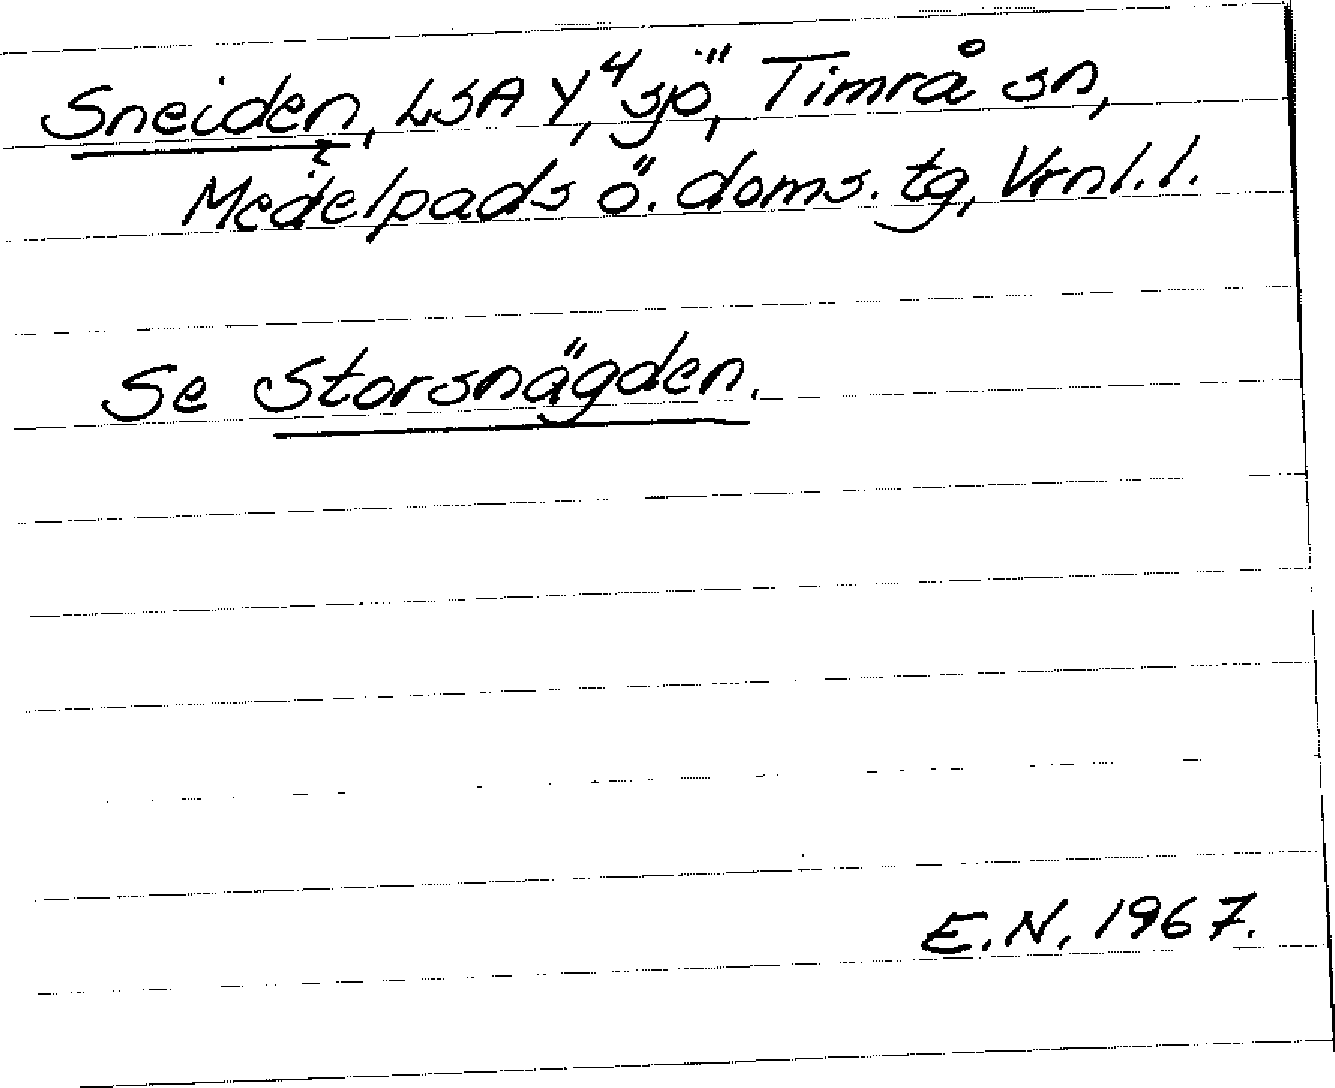 Sneiden, LSA Y⁴, sjö, Timrå sn,
Medelpads ö. doms. tg, Vrnl. l.
Se Storsnägden.
E.N. 1967.